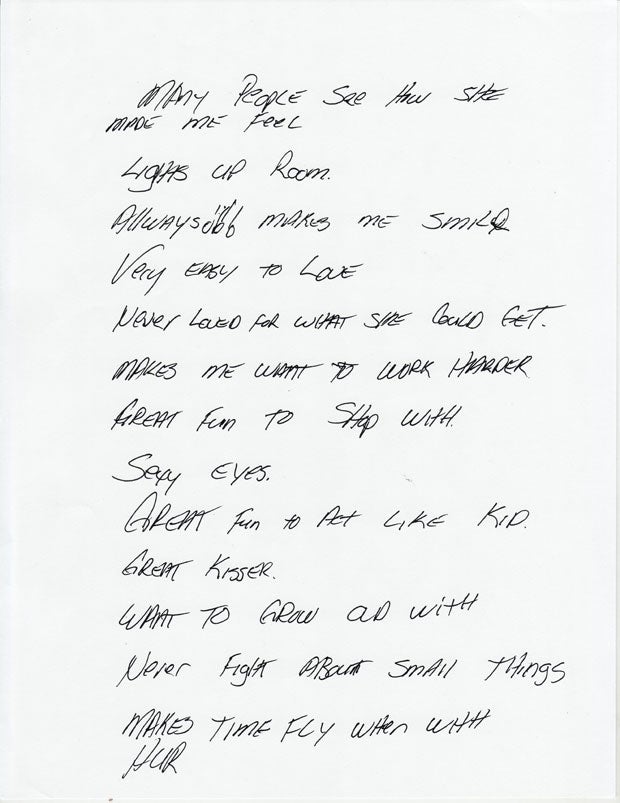 MANY PEOPLE SEE HOW SHE
MADE ME FEEL
LIGHTS UP ROOM.
AllWAYS MAKES ME SMILE
Very EASY TO LOVE
Never LOVED FOR WHAT SHE COULD GET.
MAKES ME WANT TO WORK HARDER
GREAT Fun TO SHOP WITH.
Sexy EYES.
GREAT Fun to ACT LIKE KID.
GREAT KISSER.
WANT TO GROW OLD WITH
Never Fight ABOUT SMAll THings
MAKES TIME FLY WHen WITH
HUR